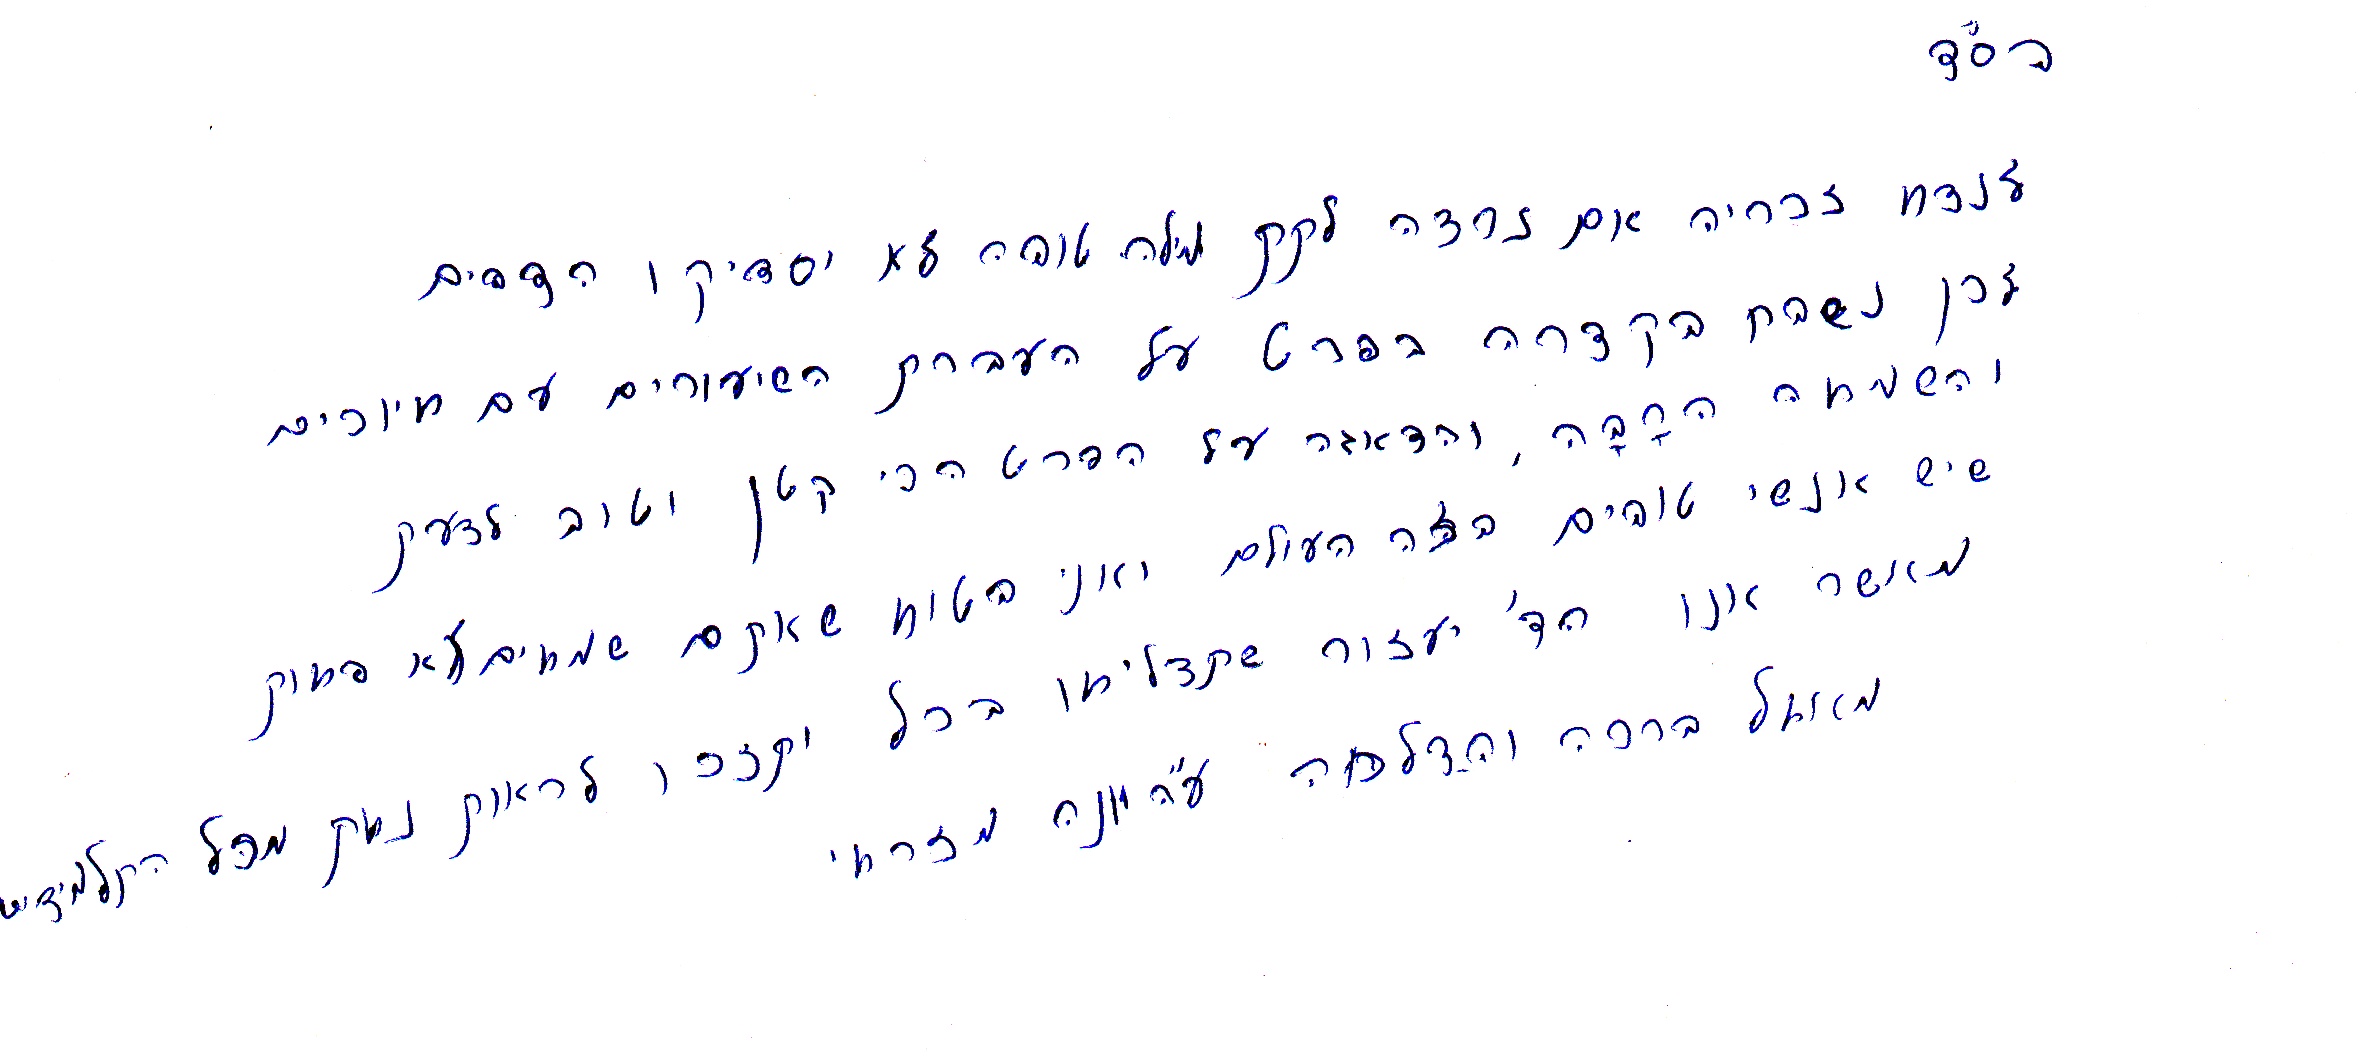 בס"ד
לנצח זכריה אם נרצה לתת מילה טובה לא יספיקו הדפים
לכן נשבח בקצרה בפרט על העברת השיעורים עם חיוכים
והשמחה הרָבָּה, והדאגה על הפרט הכי קטן וטוב לדעת
שיש אנשי טובים בזה העולם ואני בטוח שאתם שמחים לא פחות
מאשר אנו הד' יעזור שתצליחו בכל ותזכו לראות נחת מכל התלמידים
מאחל ברכה והצלחה ע"ה יונה מזרחי